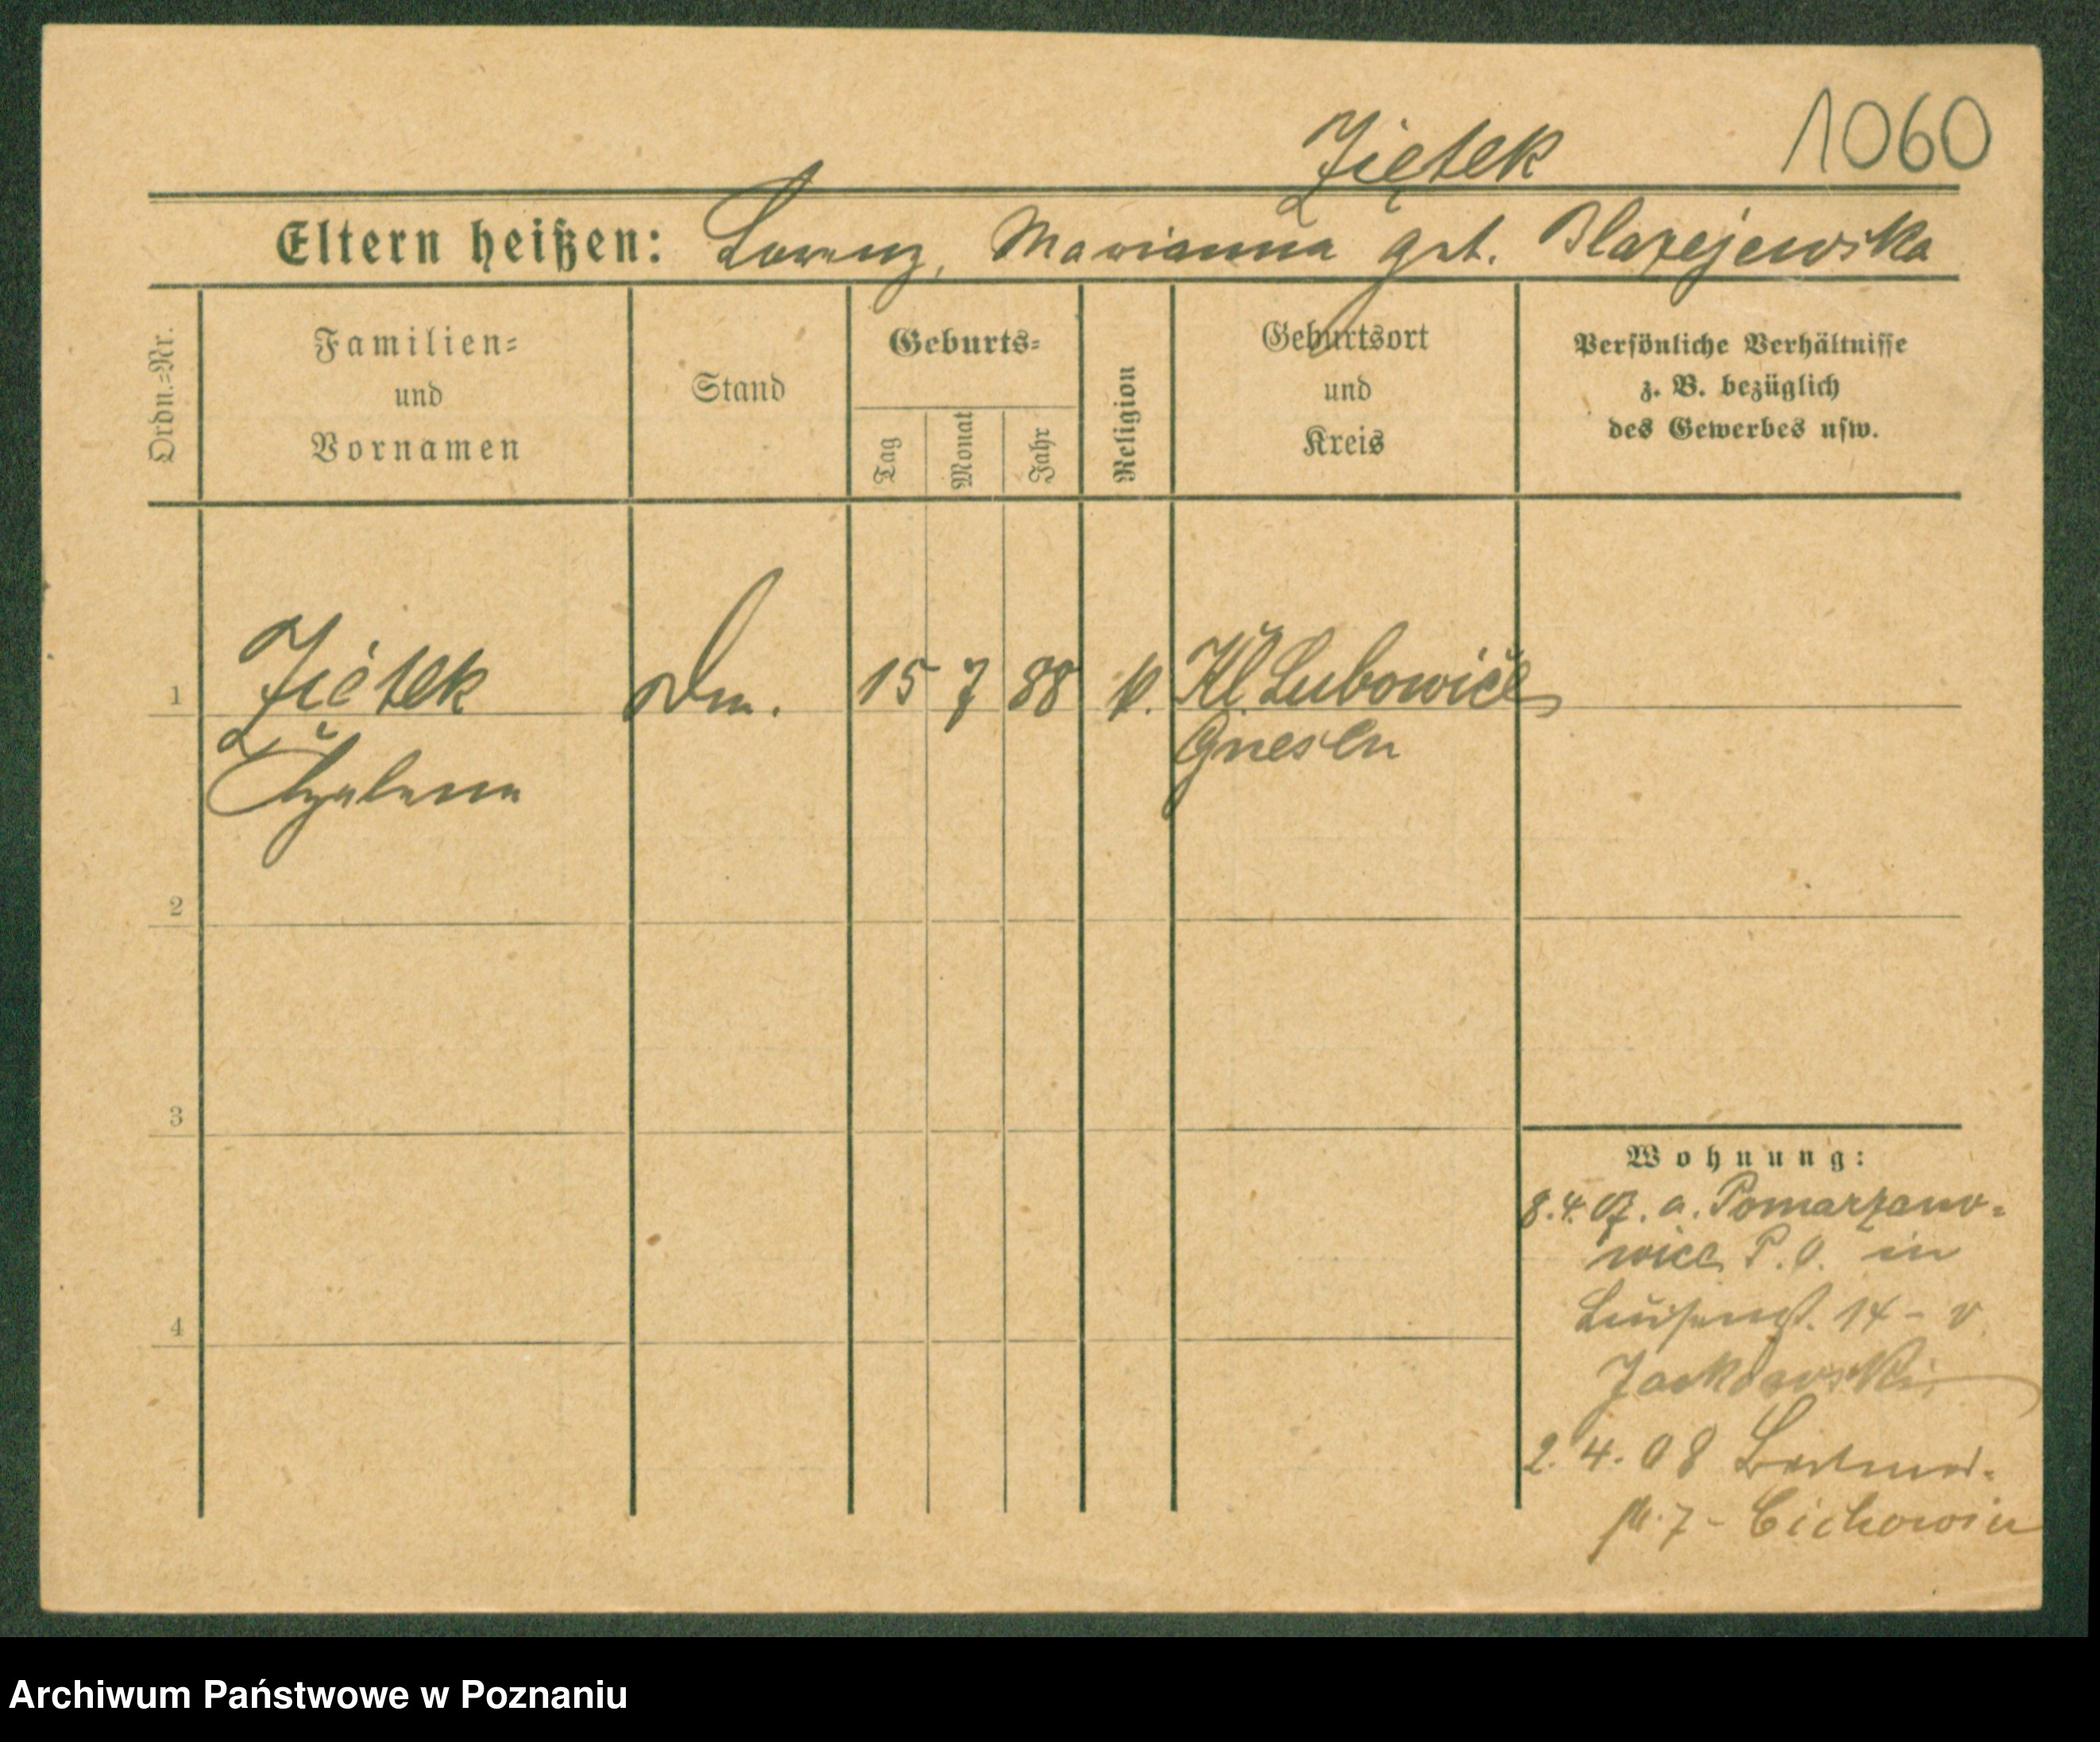 1060
Ziętek
Eltern heißen: Lorenz, Marianna geb. Blazejewska
Ordn.-Nr.
Familien-
und
Vornamen
Stand
Geburts-
Tag
Monat
Jahr
Religion
Geburtsort
und
Kreis
Persönliche Verhältnisse
z. B. bezüglich
des Gewerbes usw.
1 Ziętek 15 7 88 k. Kl. Lubowice
Gnesen
2
3
4
Wohnung:
8.4.07. a. Pomarzano-
wice P. O. in
Luisenst. 14 - v
Jackowski
2.4.08
7 - Cichowicz
Archiwum Państwowe w Poznaniu